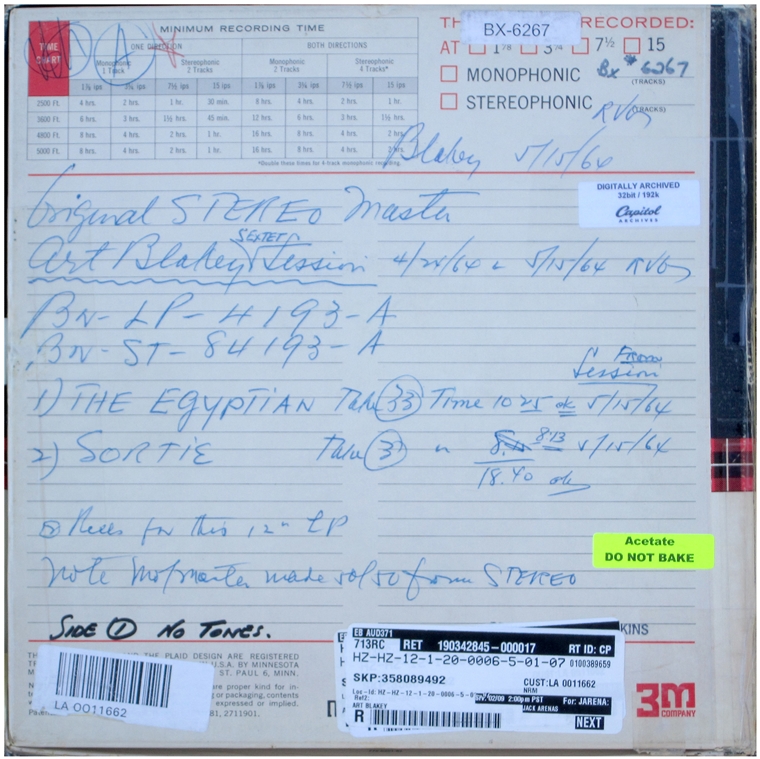 MINIMUM RECORDING TIME
TIME CHART
ONE DIRECTION BOTH DIRECTIONS
Monophonic 1 Track Stereophonic 2 Tracks Monophonic 2 Tracks Stereophonic 4 Tracks*
1⅞ ips 3¾ ips 7½ ips 15 ips 1⅞ ips 3¾ ips 7½ ips 15 ips
2500 Ft. 4 hrs. 2 hrs. 1 hr. 30 min. 8 hrs. 4 hrs. 2 hrs. 1 hr.
3600 Ft. 6 hrs. 3 hrs. 1½ hrs. 45 min. 12 hrs. 6 hrs. 3 hrs. 1½ hrs.
4800 Ft. 8 hrs. 4 hrs. 2 hrs. 1 hr. 16 hrs. 8 hrs. 4 hrs. 2 hrs.
5000 Ft. 8 hrs. 4 hrs. 2 hrs. 1 hr. 16 hrs. 8 hrs. 4 hrs. 2 hrs.
*Double these times for 4-track monophonic recording.
TH RECORDED:
BX-6267
AT 1⅞ 3¾ 7½ 15
MONOPHONIC Bx # 6267
(TRACKS)
STEREOPHONIC RVG
(TRACKS)
Blakey 5/15/64
DIGITALLY ARCHIVED
32bit / 192k
Capitol
ARCHIVES
Original STEREO Master
SEXTET
Art Blakey Session 4/24/64 & 5/15/64 RVG
BN-LP-4193-A
BN-ST-84193-A
From
Session
1) THE EGYPTIAN Take 33 Time 10 25 ok 5/15/64
2) SORTIE Take 3 " 8:13 5/15/64
18.40 ok
Pieces for this 12" LP
Acetate
DO NOT BAKE
Note Mo/master made 50/50 from STEREO
SIDE 1 NO TONES.
KINS
THE PLAID DESIGN ARE REGISTERED
U.S.A. BY MINNESOTA
ST. PAUL 6, MINN.
are proper kind for in-
or packaging, contents
expressed or implied.
81, 2711901.
LA 0011662
EB AUD371
713RC RET 190342845-000017 RT ID: CP
HZ-HZ-12-1-20-0006-5-01-07 0100389659
SKP:358089492 CUST:LA 0011662
NRM
Loc-id: HZ-HZ-12-1-20-0006-5-0
02/09 2:00pm PST For: JARENA:
Ref2:
ART BLAKEY JACK ARENAS
R NEXT
3M
COMPANY